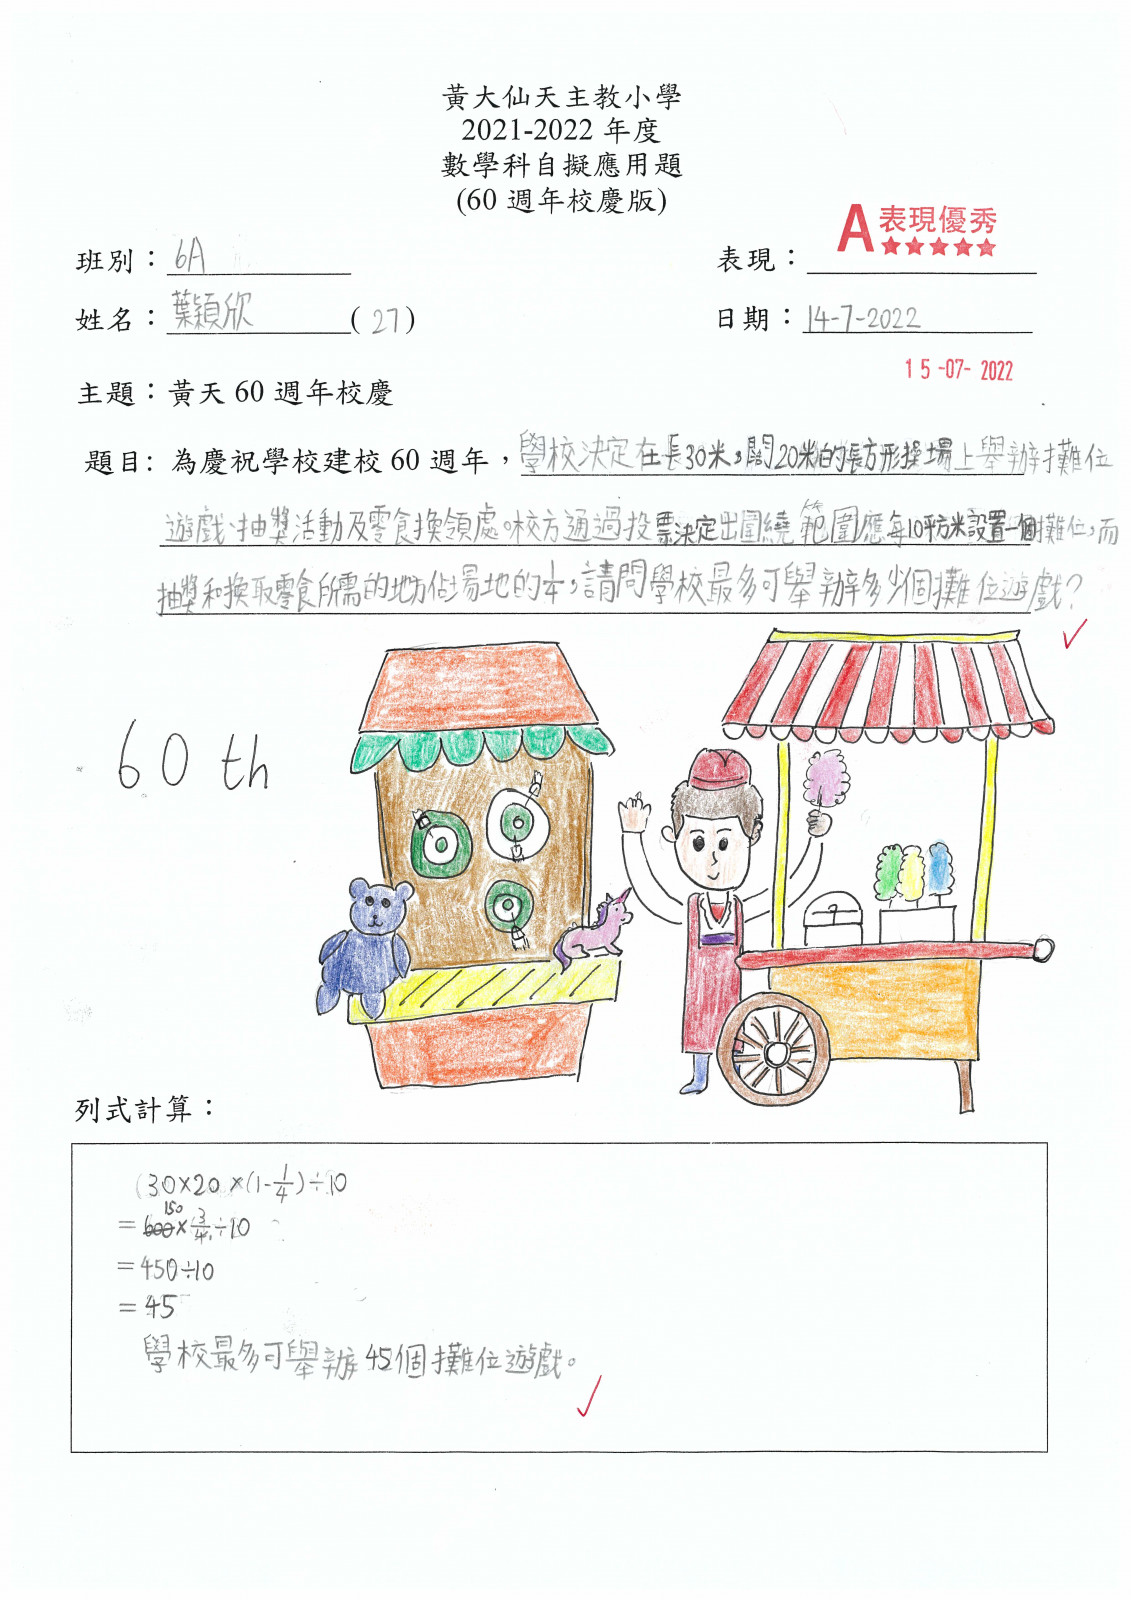 黃大仙天主教小學
2021-2022 年度
數學科自擬應用題
(60 週年校慶版)
A 表現優秀
班別：6A
表現：
姓名：葉穎欣 (27)
日期：14-7-2022
15-07-2022
主題：黃天 60 週年校慶
題目: 為慶祝學校建校 60 週年，學校決定在長30米，闊20米的長方形操場上舉辦攤位
遊戲、抽獎活動及零食換領處。校方通過投票決定出圍繞範圍應每10平方米設置一個攤位，而
抽獎和換取零食所需的地方佔場地的¼，請問學校最多可舉辦多少個攤位遊戲？
60 th
列式計算：
(30×20×(1-1/4)÷10
=600×3/4÷10
150
=450÷10
=45
學校最多可舉辦45個攤位遊戲。